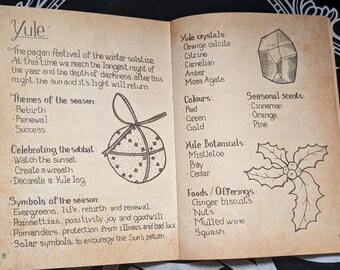 Yule:
The pagan festival of the winter solstice.
At this time we reach the longest night of
the year and the depth of darkness, after this
night, the sun and it's light will return.
Themes of the season:
· Rebirth
· Renewal
· Success
Celebrating the sabbat:
· Watch the sunset
· Create a wreath
· Decorate a Yule log
Symbols of the season:
· Evergreens, life, rebirth and renewal.
· Poinsettias, positivity, joy and goodwill.
· Pomanders, protection from illness and bad luck
· Solar symbols, to encourage the Sun's return.
8
Yule crystals:
Orange calcite
Citrine
Carnelian
Amber
Moss Agate
Colours:
· Red
· Green
· Gold
Seasonal scents:
· Cinnamon
· Orange
· Pine
Yule Botanicals:
· Mistletoe
· Bay
· Cedar
Foods / Offerings:
· Ginger biscuits
· Nuts
· Mulled wine
· Squash